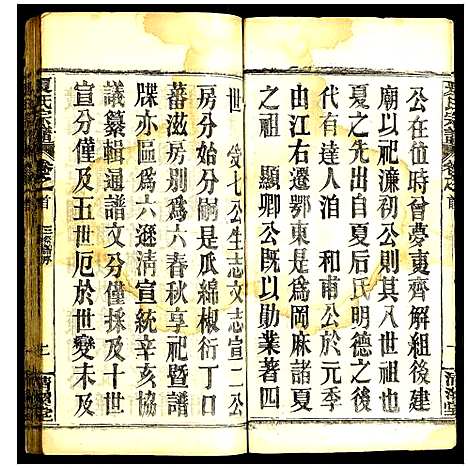 公在位時曾夢夷齊解組後建
廟以祀濂初公則其八世祖也
夏之先自夏后氏明德之後
代有達人迨　和甫公於元季
由江右遷鄂東是爲岡麻諸夏
之祖　顯卿公旣以勛業著四
世　七公生志文志宣二公
房分始大嗣是瓜綿椒衍丁口
蕃滋房別爲六春秋享祀暨譜
牒亦區爲六遜清宣統辛亥協
議纂輯通譜文分僅採及十世
宣分僅及五世厄於世變未及
夏氏宗譜
卷之首
清潔堂